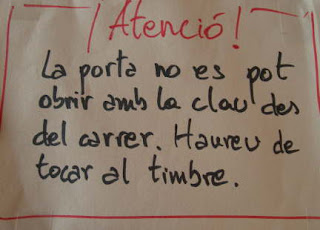 ¡Atenció!
La porta no es pot
obrir amb la clau des
del carrer. Haureu de
tocar al timbre.